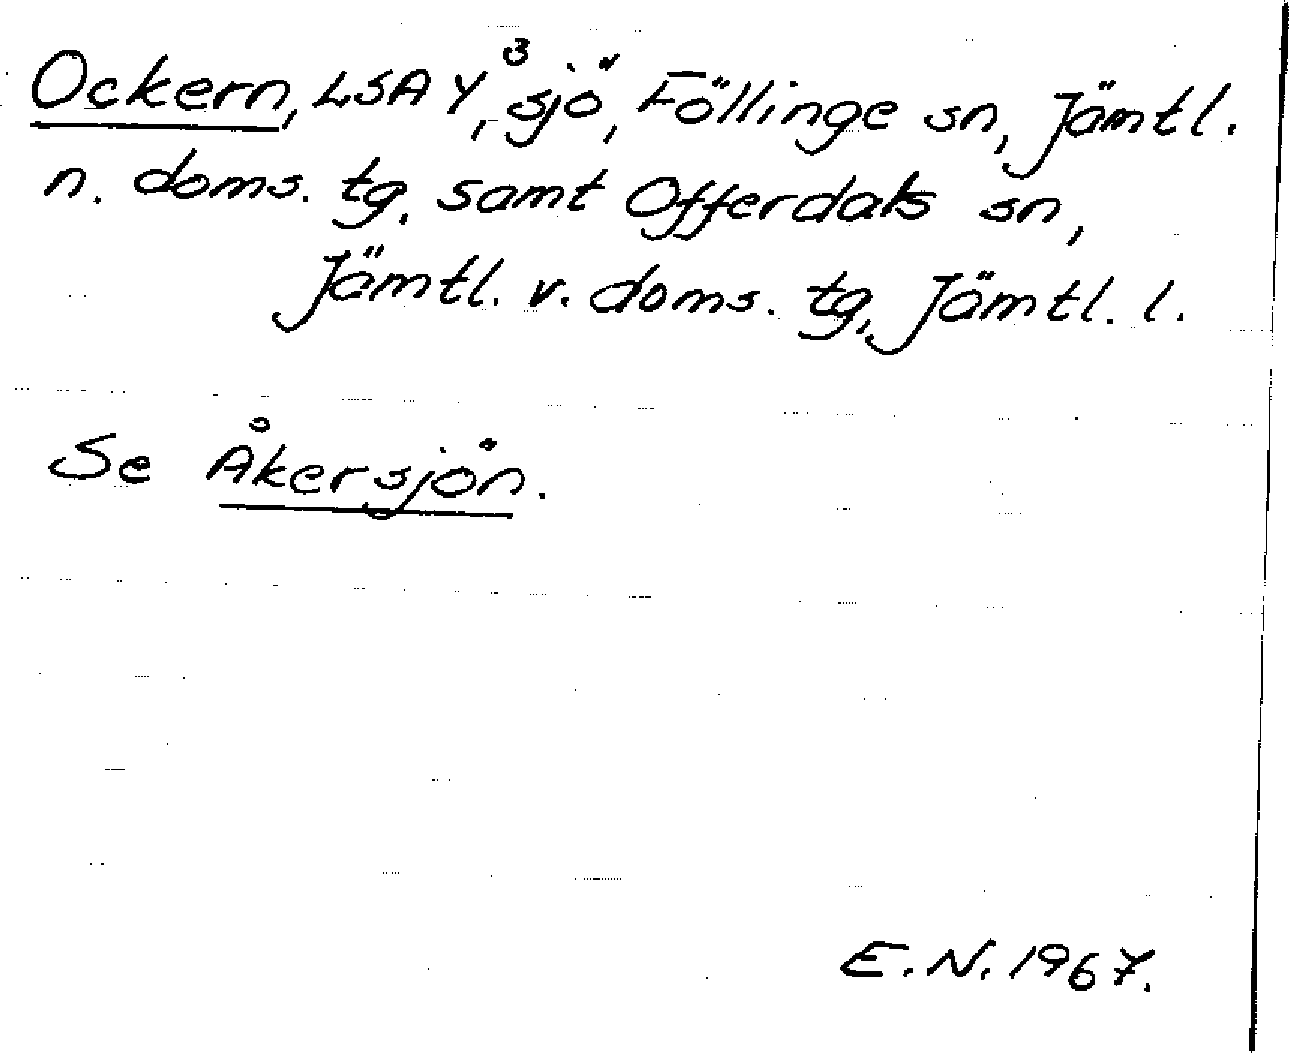 Ockern, LSA Y,³ sjö, Föllinge sn, Jämtl.
n. doms. tg, samt Offerdals sn,
Jämtl. v. doms. tg, Jämtl. l.
Se Åkersjön.
E.N. 1967.